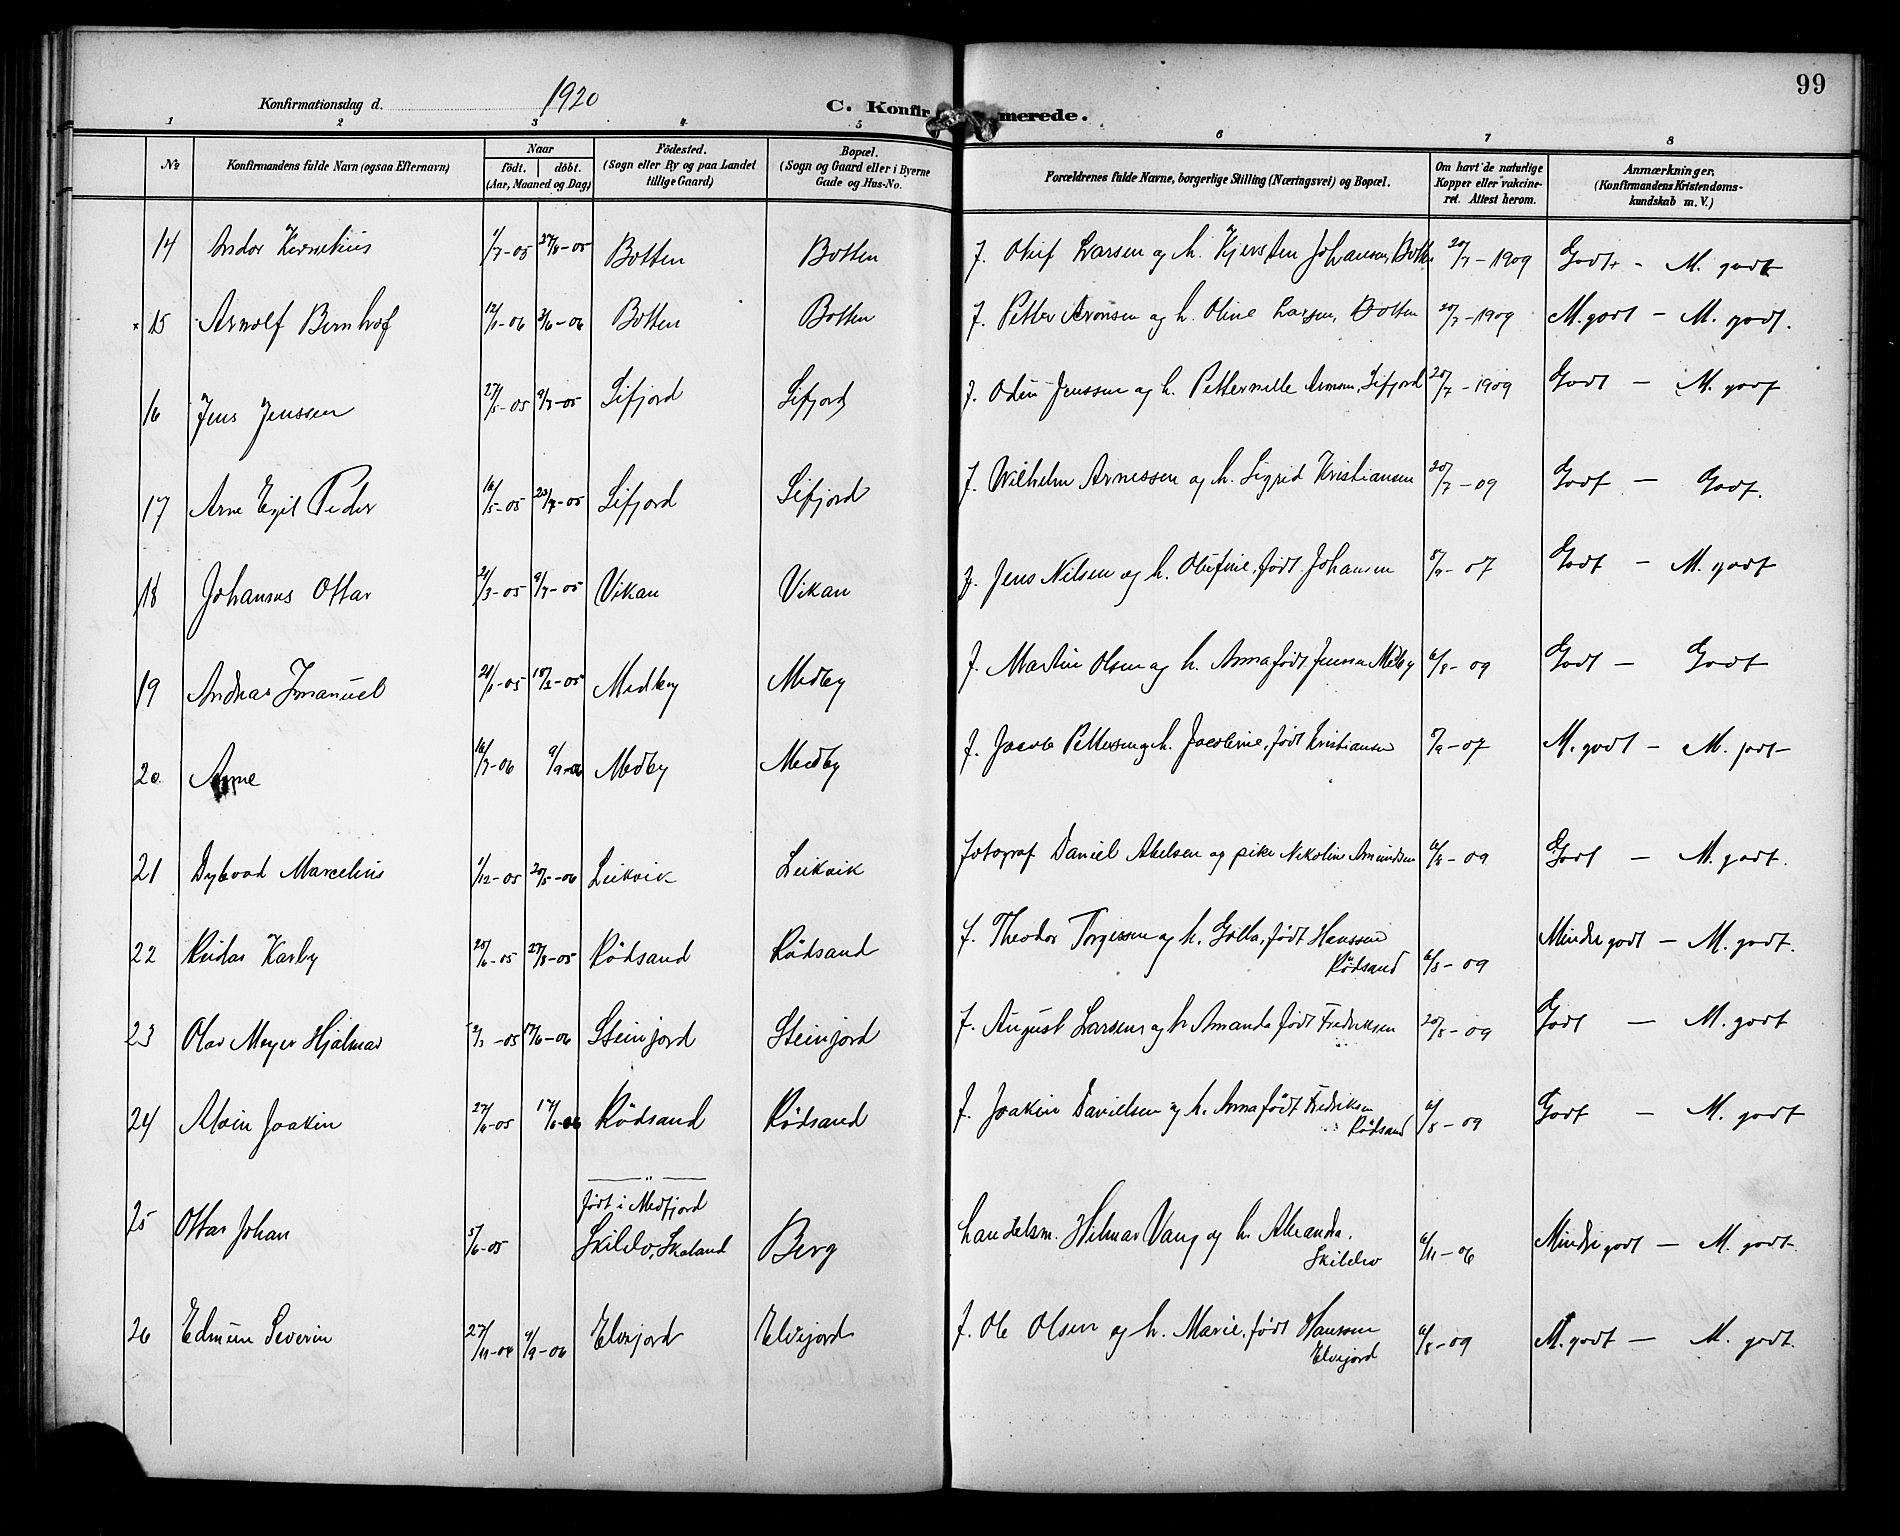 99
Konfirmationsdag d. 1920
C. Konfirmerede.
1 2 3 4 5 6 7 8
No Konfirmandens fulde Navn (ogsaa Efternavn) Naar født. døbt. (Aar, Maaned og Dag) Födested. (Sogn eller By og paa Landet tillige Gaard) Bopæl. (Sogn og Gaard eller i Byerne Gade og Hus-No. Forældrenes fulde Navne, borgerlige Stilling (Næringsvei) og Bopæl. Om havt de naturlige Kopper eller vakcineret. Attest herom. Anmærkninger, (Konfirmandens Kristendomskundskab m. V.)
14 Andor Kornelius 1/7-05 27/8-05 Botten Botten f. Oluf Larsen og h. Kjersten Johansen, Botten 20/7-1909 Godt - M. godt
15 Arnolf Bernhof 12/1-06 3/6-06 Botten Botten f. Petter Aronsen og h. Oline Larsen, Botten 20/7-1909 M. godt - M. godt.
16 Jens Jenssen 27/5-05 9/7-05 Sifjord Sifjord f. Odin Jenssen og h. Petternelle Sifjord 20/7-1909 Godt - M. godt
17 Arne Egil Peder 16/5-05 23/7-05 Sifjord Sifjord f. Wilhelm Arnessen og h. Sigrid Kristiansen 20/7-09 Godt - Godt.
18 Johannes Ottar 21/3-05 9/7-05 Vikan Vikan f. Jens Nilsen og h. Olufine, født Johansen 8/9-07 Godt - M. godt
19 Andreas Imanuel 21/1-05 18/3-05 Medby Medby f. Martin Olsen og h. Anna født Jensen Medby 6/8-09 Godt - Godt
20 Arne 16/7-06 9/9-06 Medby Medby f. Jacob Pettersen og h. Jacobine, født Kristiansen 8/9-07 M. godt - M. godt
21 Dybvad Marcelius 1/12-05 20/5-06 Leikvik Leikvik fotograf Daniel Abelsen og pike Nikoline Amundsen 6/8-09 Godt - M. godt.
22 Reidar Karby 25/6-05 27/8-05 Rödsand Rödsand f. Theodor Torgersen og h. Golla, født Hanssen
Rödsand 6/8-09 Mindre godt - M. godt.
23 Olav Meyer Hjalmar -05 17/6-06 Steinfjord Steinfjord f. August Larsen og h. Amanda født Fredriksen 20/8-09 Godt - M. godt
24 Alvin Joakin -05 17/6-06 Rödsand Rödsand f. Joakin Danielsen og h. Anna født Fredriksen
Rödsand 6/8-09 Godt - M. godt
født i Medfjord
25 Ottar Johan 5/6-05 Skilelv, Skaland Berg handelsm. Hilmar Vang og h. Alexandra.
Skilelv 6/11-06 Mindre godt - M. godt
26 Edmun Severin 27/11-04 9/9-06 Elvejord Elvejord f. Ole Olsen og h. Marie, født Hanssen
Elvejord 6/8-09 M. godt - M. godt.